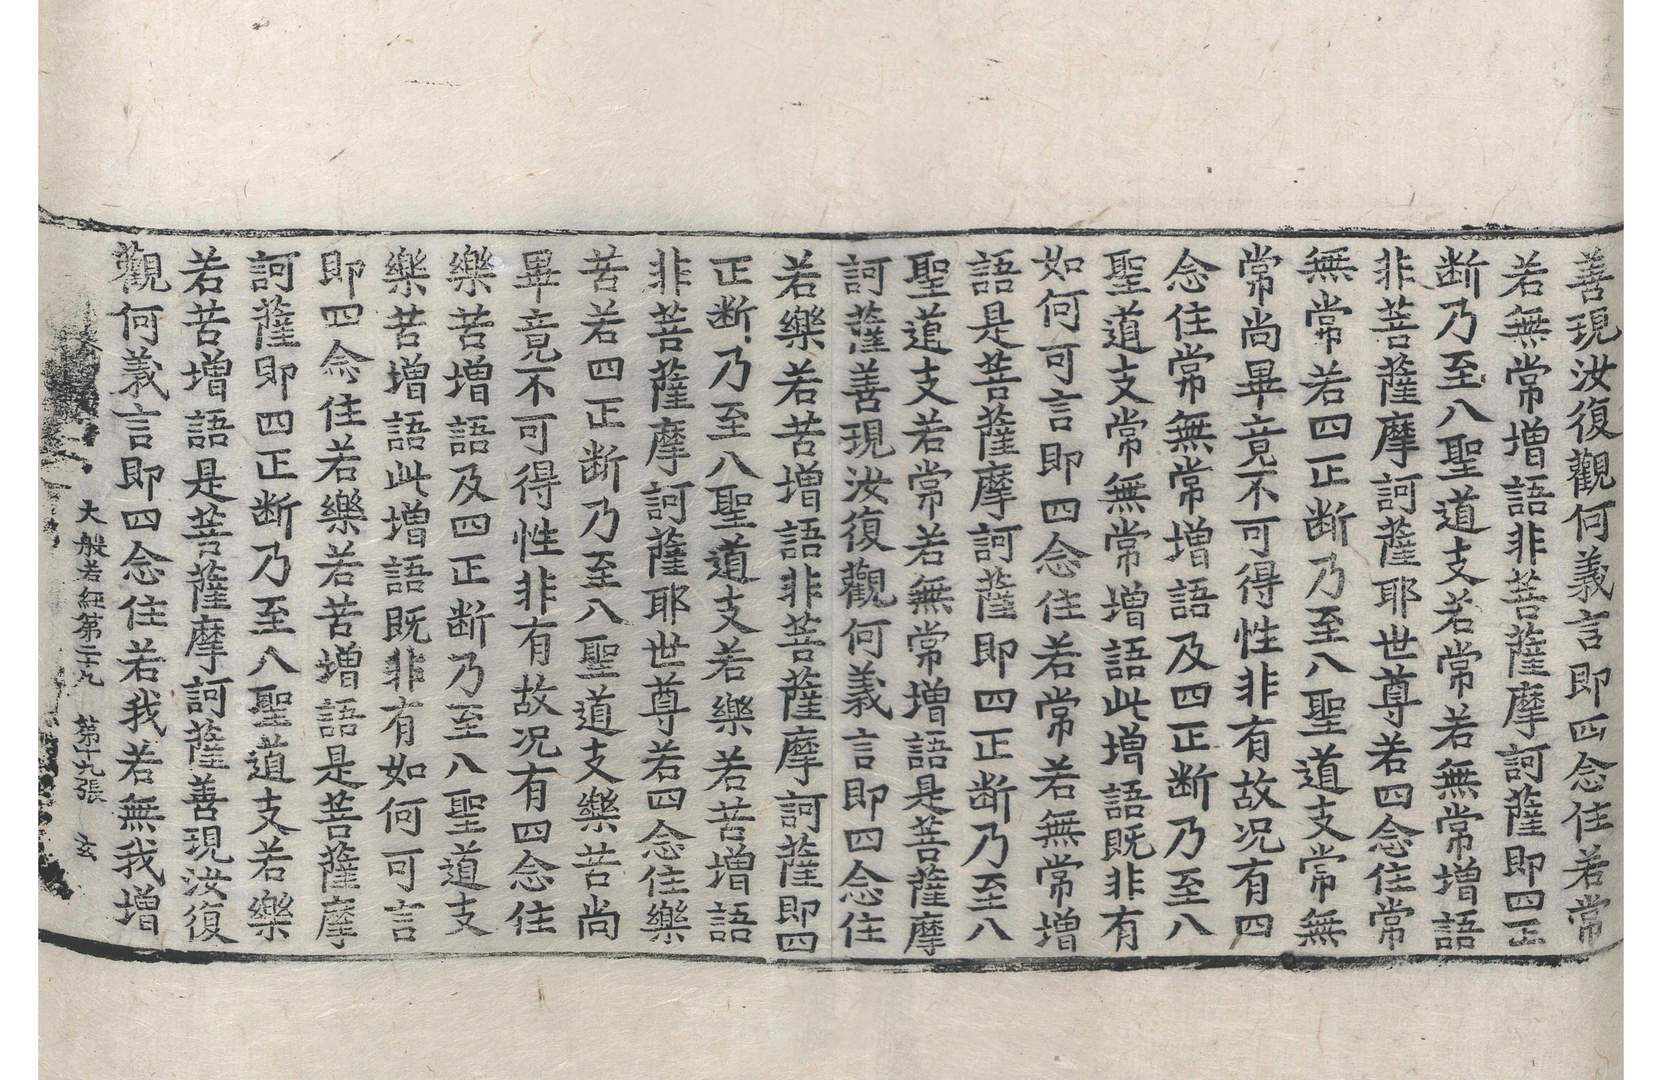 善現汝復觀何義言即四念住若常
若無常增語非菩薩摩訶薩即四正
断乃至八聖道支若常若無常增語
非菩薩摩訶薩耶世尊若四念住常
無常若四正断乃至八聖道支常無
常尚畢竟不可得性非有故况有四
念住常無常增語及四正断乃至八
聖道支常無常增語此增語既非有
如何可言即四念住若常若無常增
語是菩薩摩訶薩即四正断乃至八
聖道支若常若無常增語是菩薩摩
訶薩善現汝復觀何義言即四念住
若樂若苦增語非菩薩摩訶薩即四
正断乃至八聖道支若樂若苦增語
非菩薩摩訶薩耶世尊若四念住樂
苦若四正断乃至八聖道支樂苦尚
畢竟不可得性非有故况有四念住
樂苦增語及四正断乃至八聖道支
樂苦增語此增語既非有如何可言
即四念住若樂若苦增語是菩薩摩
訶薩即四正断乃至八聖道支若樂
若苦增語是菩薩摩訶薩善現汝復
觀何義言即四念住若我若無我增
大般若經第二十九 第十九張 玄